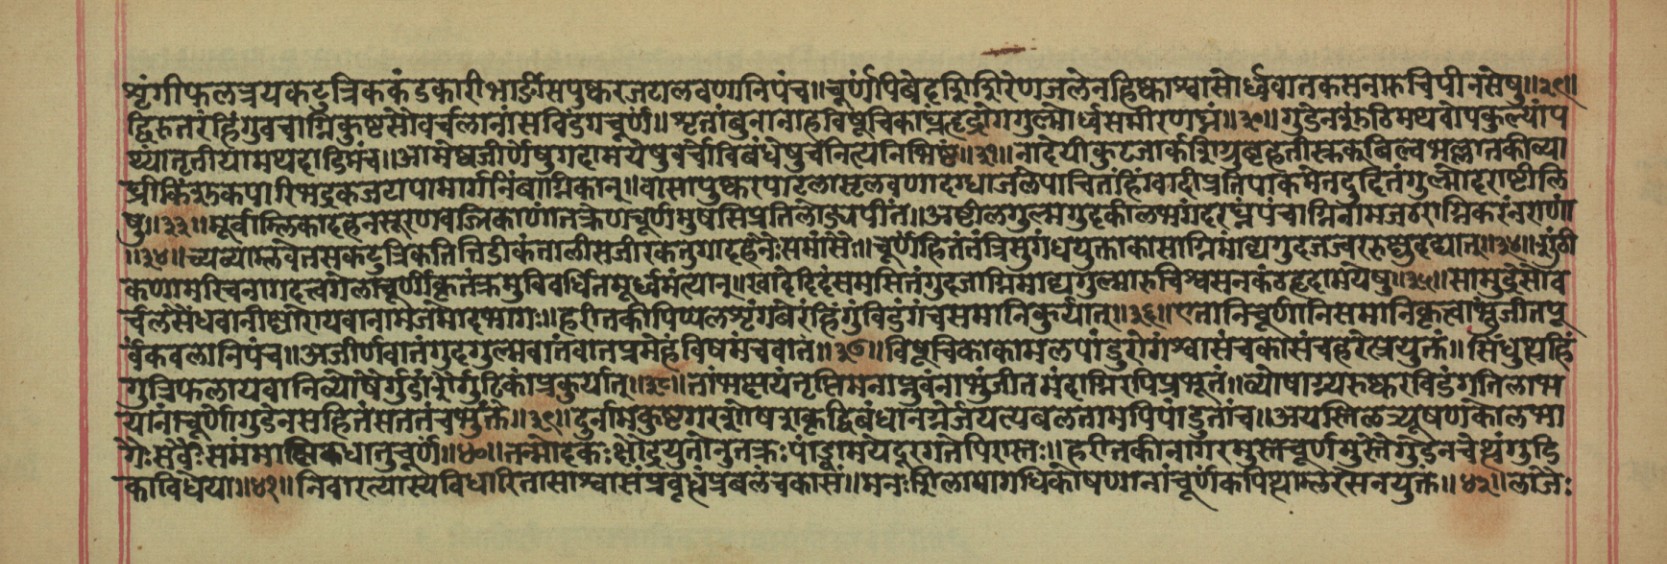 शृंगीफलत्रयकटुत्रिककंडकारीभार्ङीसपुष्करजटालवणानिपंच॥चूर्णंपिबेदशिशिरेणजलेनहिक्काश्वासोर्ध्ववातकसनारुचिपीनसेषु॥२९॥
द्विरुत्तरंहिंगुवचाग्निकुष्टसौवर्चलानांसविडंगचूर्णं॥शृतांबुनानाहविषूचिकाघ्नहृद्रोगगुल्मोर्ध्वसमीरणघ्नं॥३०॥गुडेनशुंठिमथवोपकुल्यांप
थ्यांतृतीयामथदाडिमंच॥आमेष्वजीर्णेषुगदामयेषुवर्चोविबंधेषुचनित्यनिमिष्ट॥३१॥नादेयीकुटजार्कशिग्रुबृहतीस्नुक्बिल्वभल्लातकीव्या
घ्रीकिंशुकपारिभद्रकजटापामार्गनिंबाग्निकान्॥वासापुष्करपाटलासलवणादग्धाजलेपाचितंहिंग्वादीप्रतिपाकमेतदुदितंगुल्मोदराष्टीलि
षु॥३३॥मूर्वाम्लिकादहनसूरणवज्रिकाणांतक्रेणचूर्णमुषसिप्रतिलोड्यपीतं॥अष्टीलगुल्मगुदकीलभगंदरघ्नंपंचाग्निनामजठराग्निकरंनराणां
॥३४॥च्यव्याम्लवेतसकटुत्रिकतित्तिडीकंतालीसजीरकतुगादहनैःसमांसैः॥चूर्णंहितंतंत्रिसुगंधयुक्तंकासाग्निमांद्यगुदजज्वररुक्षुदद्यात्॥३४॥शुंठी
कणामरिचनागदलत्वगेलांचूर्णीकृतंक्रमुविवर्धितमूर्ध्वमंत्यात्॥खादेदिदंसमसितंगुदजाग्निमांद्यगुल्मारुचिश्वसनकंठहृदामयेषु॥३५॥सामुद्रसौव
र्चलसैंधवानीक्षारोयवानामजमोदभागः॥हरीतकीपिप्पलशृंगंबेरंहिंगुंविडंगंचसमानिकुर्यात्॥३६॥एतानिचूर्णानिसमानिकृत्वाभुंजीतपू
र्वंकवलानिपंच॥अजीर्णवातंगुदगुल्मवातंवातप्रमेहंविषमंचवातं॥३७॥विषूचिकाकामलपांडुरोगंश्वासंचकासंचहरेत्प्रयुक्तं॥सिंधुप्यहिं
गुत्रिफलायवानिव्योषैर्गुडांशैर्गुटिकांप्रकुर्यात्॥३८॥तांभक्षयंतृप्तिमनाप्नुवंनाभुंजीतमंदाग्निरपिप्रभूतं॥व्योषाग्न्यरुष्करविडंगतिलाभ
यानांचूर्णंगुडेनसहितंसततंचभुंक्ते॥३९॥दुर्नामकुष्टगरशोषशकृद्विबंधानग्नेर्जयत्यबलतामपिपांडुतांच॥अयस्तिलत्र्यूषणकोलभा
गैःसर्वैःसमंमाक्षिकधातुचूर्णं॥४०॥तन्मोदकःक्षौद्रयुतोनुतक्रःपांड्वामयेदूरगतेपिशस्तः॥हरीतकीनागरमुस्तचूर्णमुस्तेगुडेनचेत्थंगुडि
काविधेया॥४१॥निवारत्यास्यविधारितासाश्वासंप्रवृत्थंप्रबलंचकासं॥मनःशिलामागधिकोषणानांचूर्णंकपित्थाम्लरसेनयुक्तं॥४२॥लाजैः